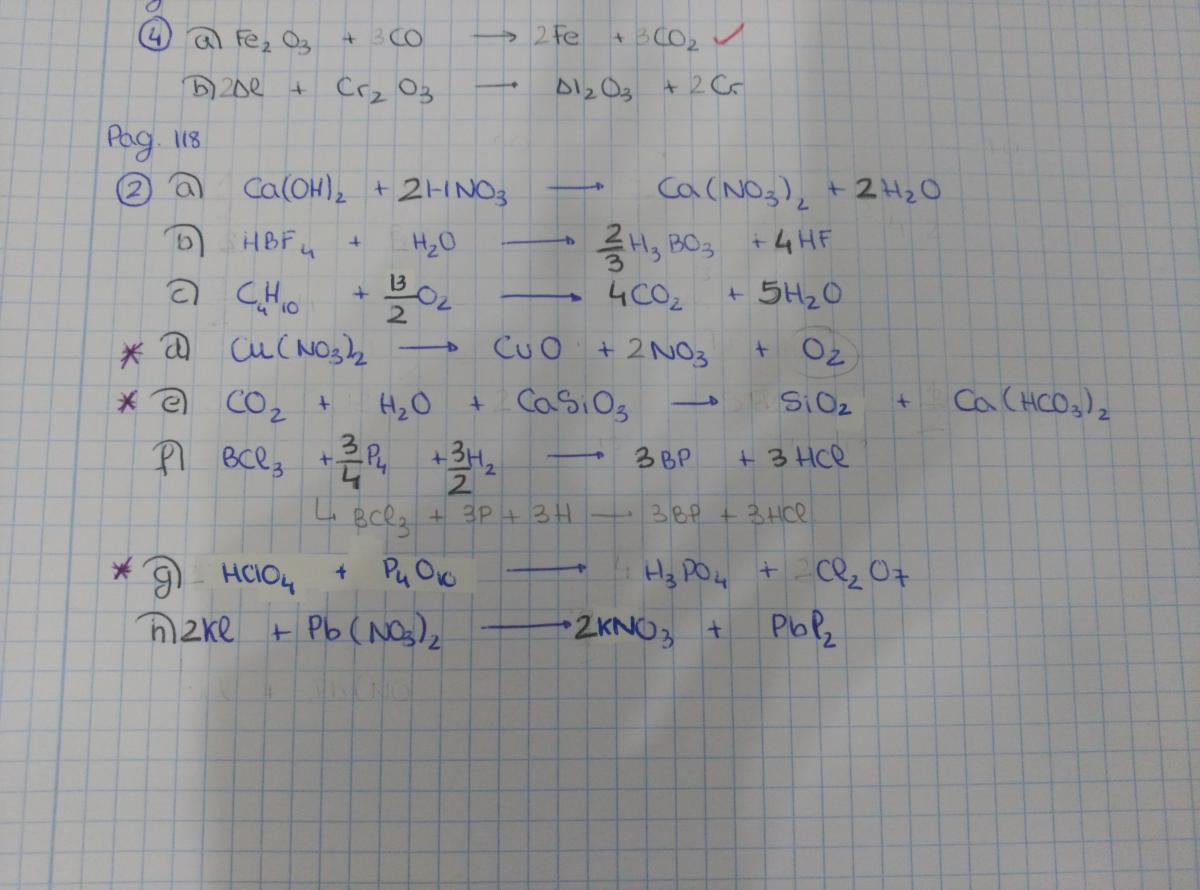 4 a) Fe₂O₃ + 3CO → 2Fe + 3CO₂ ✓
b) 2Al + Cr₂O₃ → Al₂O₃ + 2Cr
Pag. 118
2 a) Ca(OH)₂ + 2HNO₃ → Ca(NO₃)₂ + 2H₂O
b) HBF₄ + H₂O → 2/3 H₃BO₃ + 4HF
c) C₄H₁₀ + 13/2 O₂ → 4CO₂ + 5H₂O
* d) Cu(NO₃)₂ → CuO + 2NO₃ + O₂
* e) CO₂ + H₂O + CaSiO₃ → SiO₂ + Ca(HCO₃)₂
f) BCl₃ + 3/4 P₄ + 3/2 H₂ → 3BP + 3HCl
4 BCl₃ + 3P + 3H — 3BP + 3HCl
* g) HClO₄ + P₄O₁₀ → 4H₃PO₄ + 2Cl₂O₇
h) 2Kl + Pb(NO₃)₂ → 2KNO₃ + PbP₂